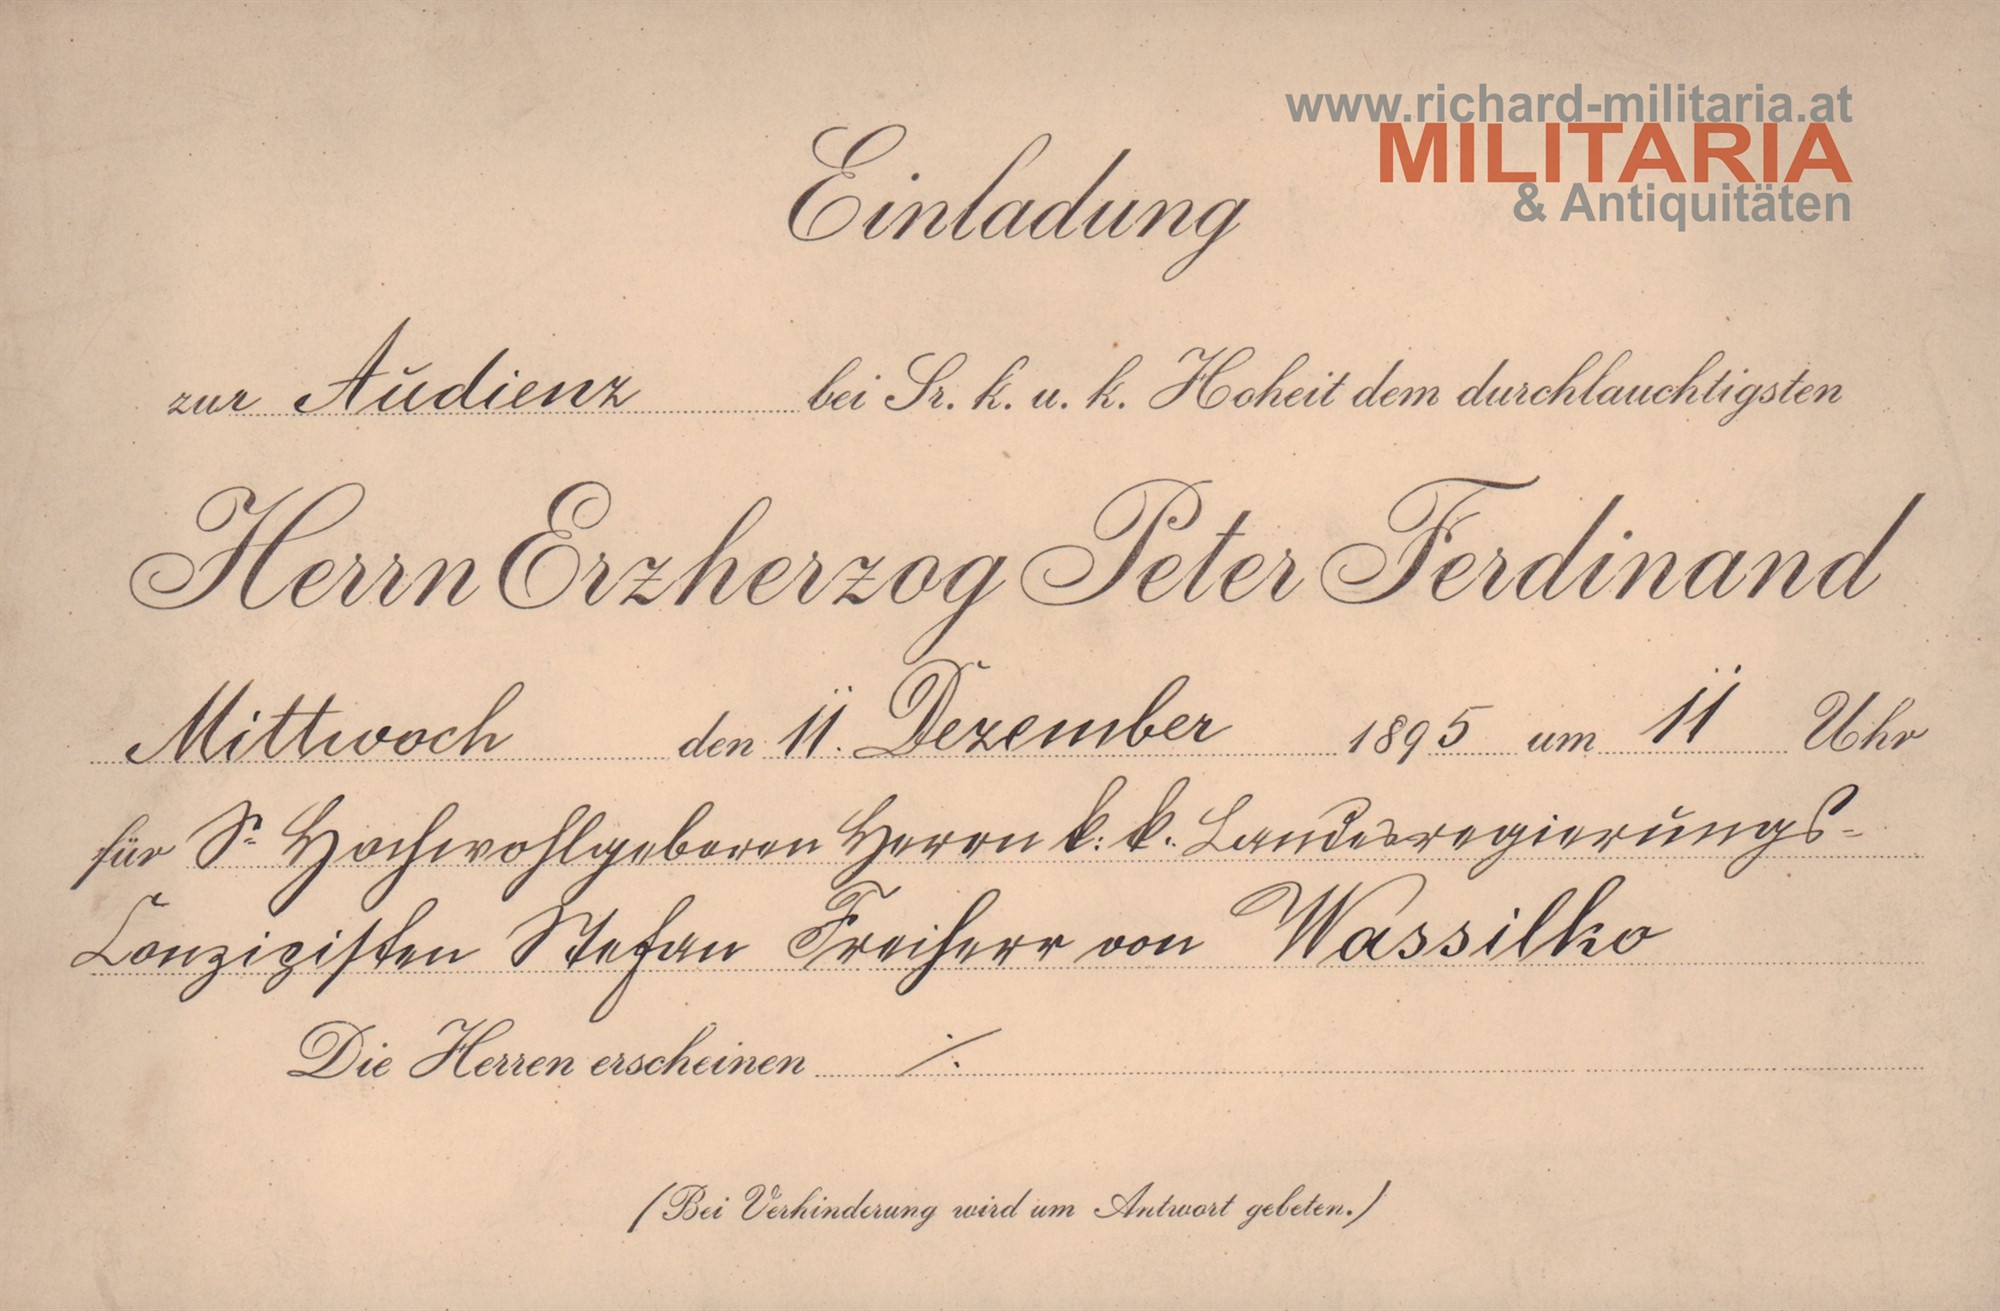 www.richard-militaria.at
MILITARIA
& Antiquitäten
Einladung
zur Audienz bei Sr. k. u. k. Hoheit dem durchlauchtigsten
Herrn Erzherzog Peter Ferdinand
Mittwoch den 11. Dezember 1895 um 11 Uhr
für Sr Hochwohlgeboren Herrn k. k. Landesregierungs-
Conzipisten Stefan Freiherr von Wassilko
Die Herren erscheinen ./.
(Bei Verhinderung wird um Antwort gebeten.)